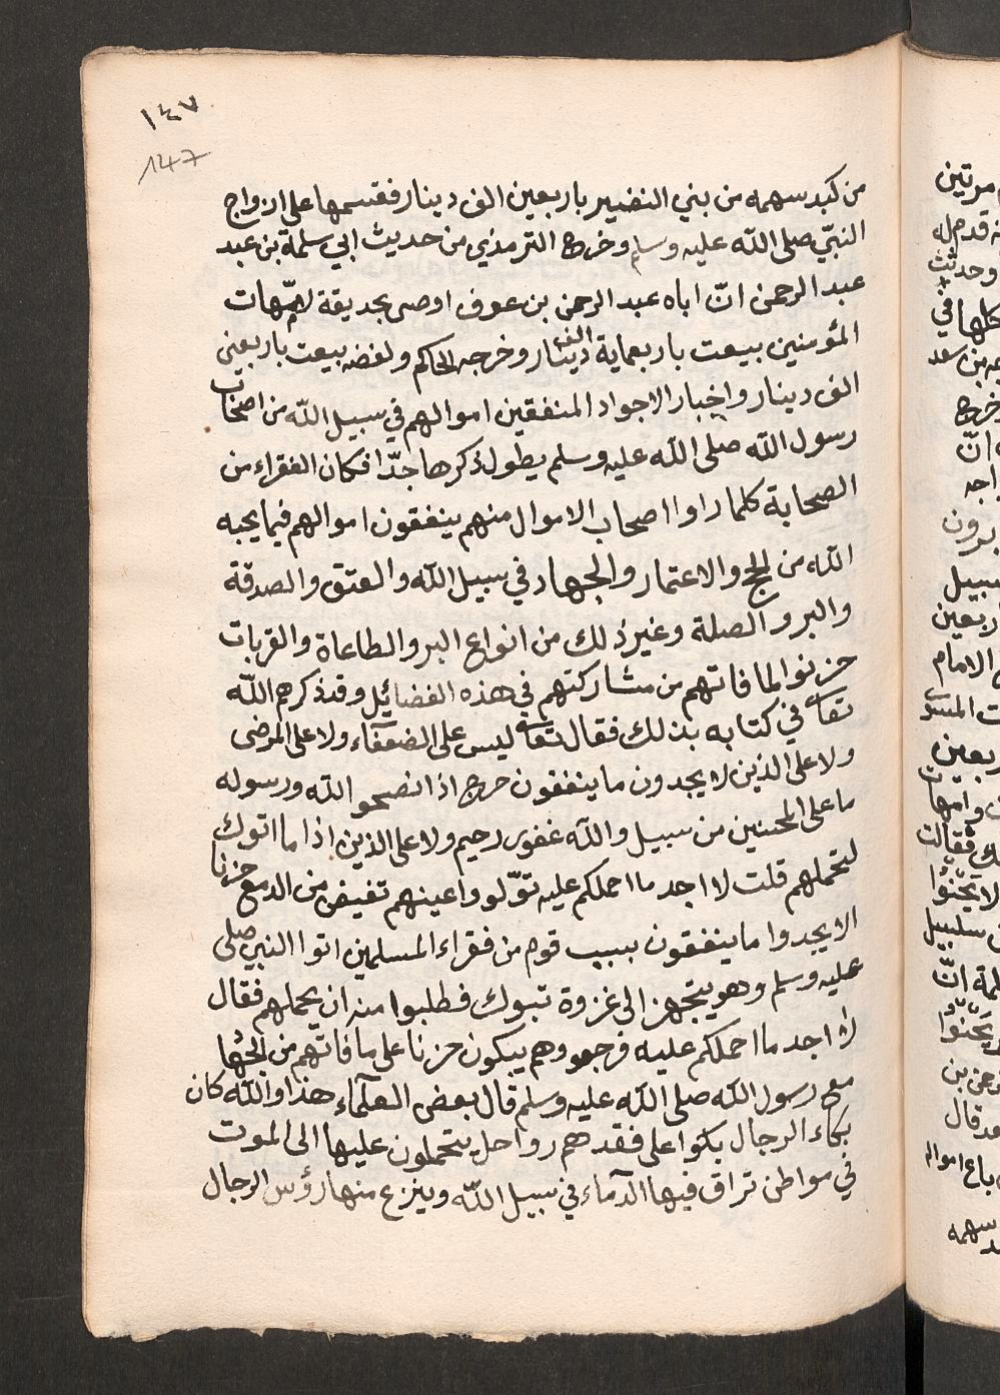 ١٤٧
147
من كبد سهمه من بني النضير باربعين الف دينار فقسمها على ازواج
النبّي صلى الله عليه وسلم وخرج الترمذي من حديث ابي سلمة بن عبد
عبد الرحمن انّ اباه عبد الرحمن بن عوف اوصى بحديقة لامّهات
المؤمنين بيعت باربعماية الف دينار وخرجه الحاكم ولفضه بيعت باربعين
الف دينار واخبار الاجواد المنفقين اموالهم في سبيل الله من اصحاب
رسول الله صلى الله عليه وسلم يطول ذكرها جدّا فكان الفقراء من
الصحابة كلما راوا اصحاب الاموال منهم ينفقون اموالهم فيما يحبه
الله من الحج والاعتمار والجهاد في سبيل الله والعتق والصدقة
والبر والصلة وغير ذلك من انواع البر والطاعاة والقربات
حزنوا لما فاتهم من مشاركتهم في هذه الفضائل وقد ذكرهم الله
تعالى في كتابه بذلك فقال تعالى ليس على الضعفاء ولا على المرضى
ولا على الذين لا يجدون ما ينفقون حرج اذا نصحو الله ورسوله
ما على المحسنين من سبيل والله غفور رحيم ولا على الذين اذا ما اتوك
لتحملهم قلت لا اجد ما احملكم عليه توّلو واعينهم تفيض من الدمع حزنا
الا يجدوا ما ينفقون بسبب قوم من فقراء المسلمين اتوا النبي صلى
عليه وسلم وهو يتجهز الى غزوة تبوك فطلبوا منه ان يحملهم فقال
لا اجد ما احملكم عليه فرجعو وهم يبكون حزنا على ما فاتّهم من الجهاد
مع رسول الله صلى الله عليه وسلم قال بعض العلماء هذا والله كان
بكاء الرجال بكوا على فقدهم رواحل يتحملون عليها الى الموت
في مواطن تراق فيها الدماء في سبيل الله وينزع منها رؤس الرجال